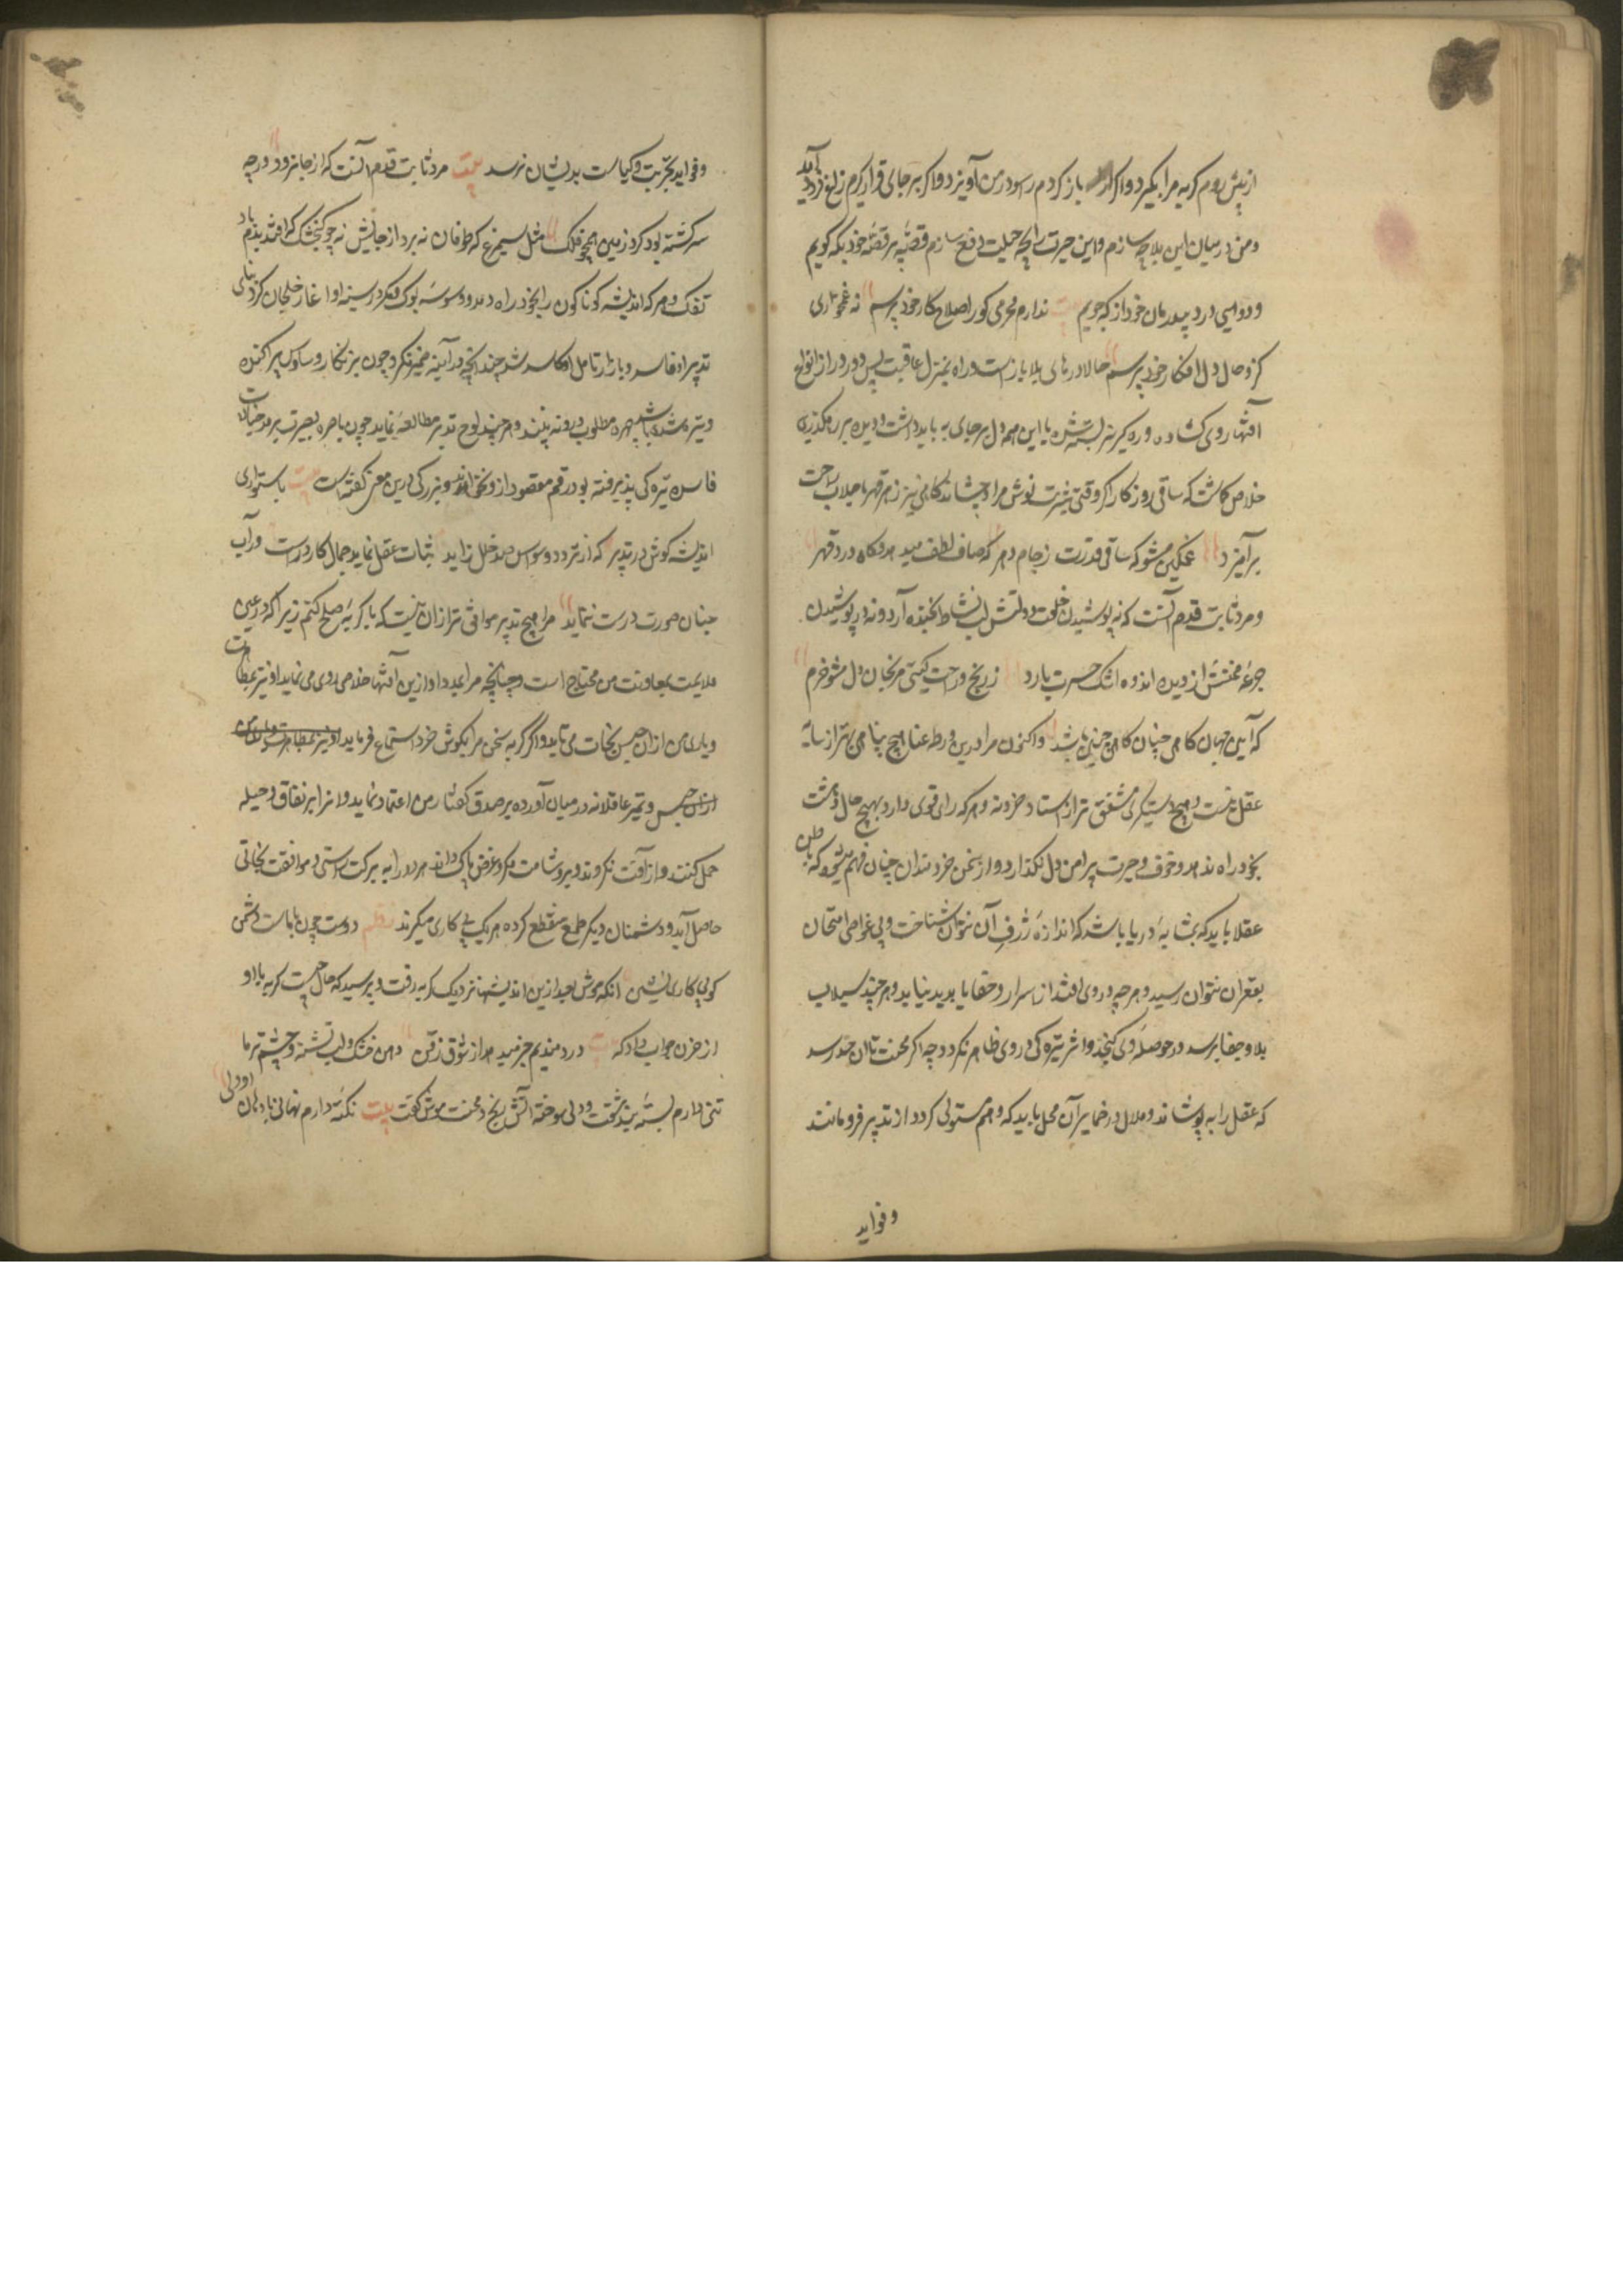 از پیش روم گربه مرا بگیرد و اگر باز گردم راسو در من آویزد و اگر بر جای قرار گیرم زاغ فرود آید
و من در میان این بلا چه سازم و این حیرت را بچه حیلت دفع سازم قصه پر قصه خود بکه گویم
و دوای درد بیدرمان خود از که جویم ندارم محرمی کو را صلاح کار خود پرسم نه غمخواری
کزو حال دل افکار خود پرسم حالا درهای بلا بازست و راه بمنزل عاقبت بس دور و دراز انواع
آفتها روی گشاده و ره گریز بسته شده با این همه دل بر جای به باید داشت و دیده بر رهگذری
خلاص گماشت که ساقی روزگار اگر وقتی شربت نوش مراد چشاند گاهی نیز زهر قهر با جلاب راحت
برآمیزد غمگین مشو که ساقی قدرت ز جام دهر گه صاف لطف میدهد و گاه درد قهر
و مرد ثابت قدم آنست که نه پوشیدن خلعت دولتش لب نشاط بخنده آرد و نه در نوشیدن
جرعه محنتش از دیده اندوه اشک حسرت بارد ز رنج و راحت گیتی مرنجان دل مشو خرم
که آیین جهان گاهی چنان گاهی چنین باشد و اکنون مرا درین ورطه عنا هیچ پناهی بهتر از سایه
عقل نیست و هیچ دستگیری مشفق تر از استاد خرد نه و هر که رای قوی دارد بهیچ حال دهشت
بخود راه ندهد و خوف و حیرت پیرامن دل نگذارد و از سخن خردمندان چنان فهم میشود که باطن
عقلا باید که بمثابه دریا باشد که اندازه ژرف آن نتوان شناخت و بی غواص امتحان
بقعر آن نتوان رسید و هر چه در وی افتد از اسرار و خفایا پدید نیاید و هر چند سیلاب
بلا و جفا برسد در حوصله وی گنجد و اثر تیره گی در وی ظاهر نگردد چه اگر محنت تا آن حد رسد
که عقل را به پوشاند و ملال در ضمایر آن محل یابد که وهم مستولی گردد از تدبیر فرو مانند
و فواید
و فواید تجربت و کیاست بدیشان نرسد بیت مرد ثابت قدم آنست که از جا نرود ورچه
سرگشته بود گرد زمین همچو فلک مثل سیمرغ که طوفان نه برد از جایش نه چو گنجشک که افتد بدم باد
تفک و هر که اندیشه گوناگون را بخود راه دهد و وسوسه بوک و مگر در سینه او آغاز خلجان کرد بنای
تدبیر او فاسد و بازار تامل او کاسد شد چندانچه در آیینه ضمیر نگرد چون بزنگار وساوس پراکنده
و تیره شده باشد چهره مطلوب در و نه بیند و هر چند لوح تدبیر مطالعه نماید چون باصره بصیرت برمد خیالات
فاسده تیره گی پذیرفته بود رقم مقصود از و نخواند و بزرگی درین معنی گفته است بیت باستواری
اندیشه کوش در تدبیر که از تردد وسواس صد خلل زاید ثبات عقل نماید جمال کار درست در آب
جنبان صورت درست ننماید مرا هیچ تدبیر موافق تر از آن نیست که با گربه صلح کنم زیرا که در عین
ملایمت بمعاونت من محتاج است و چنانچه مرا بمدد او ازین آفتها خلاصی روی می نماید او نیز بمظاهرت
و یاری من از آن حبس نجات می یابد و اگر گربه بسخن مرا بگوش خرد استماع فرماید او نیز بمظاهرت و یاری من
از آن حبس و تمیز عاقلانه در میان آورده بر صدق گفتار من اعتماد نماید و آنرا بر نفاق و حیله
حمل نکند و از آفت مکر و غدر و شامت مکر و غرض پاک داند هر دو را به برکت راستی و موافقت نجاتی
حاصل آید و دشمنان دیگر طمع منقطع کرده هر یک پی کاری گیرند نظم دوست چون با ماست دشمن
گو پی کاری نشین آنگه موش بعد ازین اندیشها نزدیک گربه رفت و پرسید که حال چیست گربه با او
از حزن جواب داد که بیت دردمندیم خبر میدهد از سوق زقن دهن خشک و لب تشنه و چشم تر ما
تنی دارم بسته بند مشقت و دلی سوخته آتش رنج و محنت موش گفت بیت نکته دارم نهانی با دهان او ولی